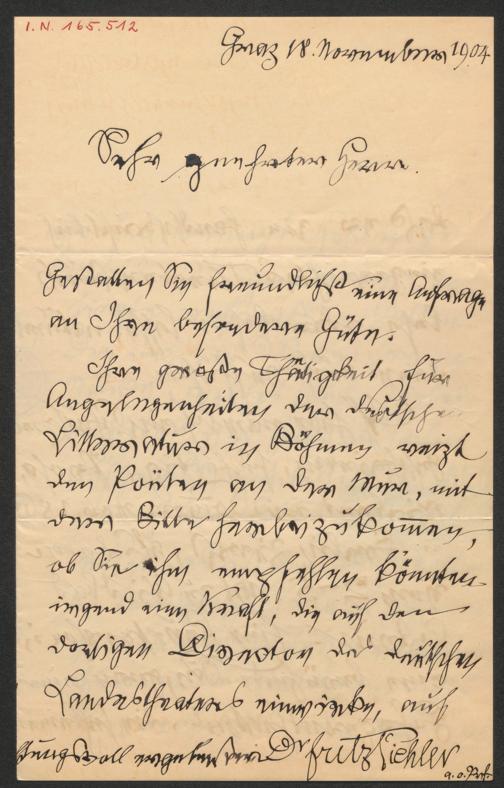 I.N. 165.512
Graz 18. November 1904
Sehr geehrter Herr.
Gestatten Sie freundlichst eine Anfrage
an Ihre besondere Güte.
Ihre große Thätigkeit für
Angelegenheiten der deutschen
Litteratur in Böhmen reizt
den Poëten an der Mur, mit
der Bitte herbeizukommen,
ob Sie ihm empfehlen könnten
irgend eine Kraft, die auf den
dortigen Direktor des deutschen
Landestheaters einwirke, auf
ergebenster Dr Fritz Pichler
a. o. Prof.